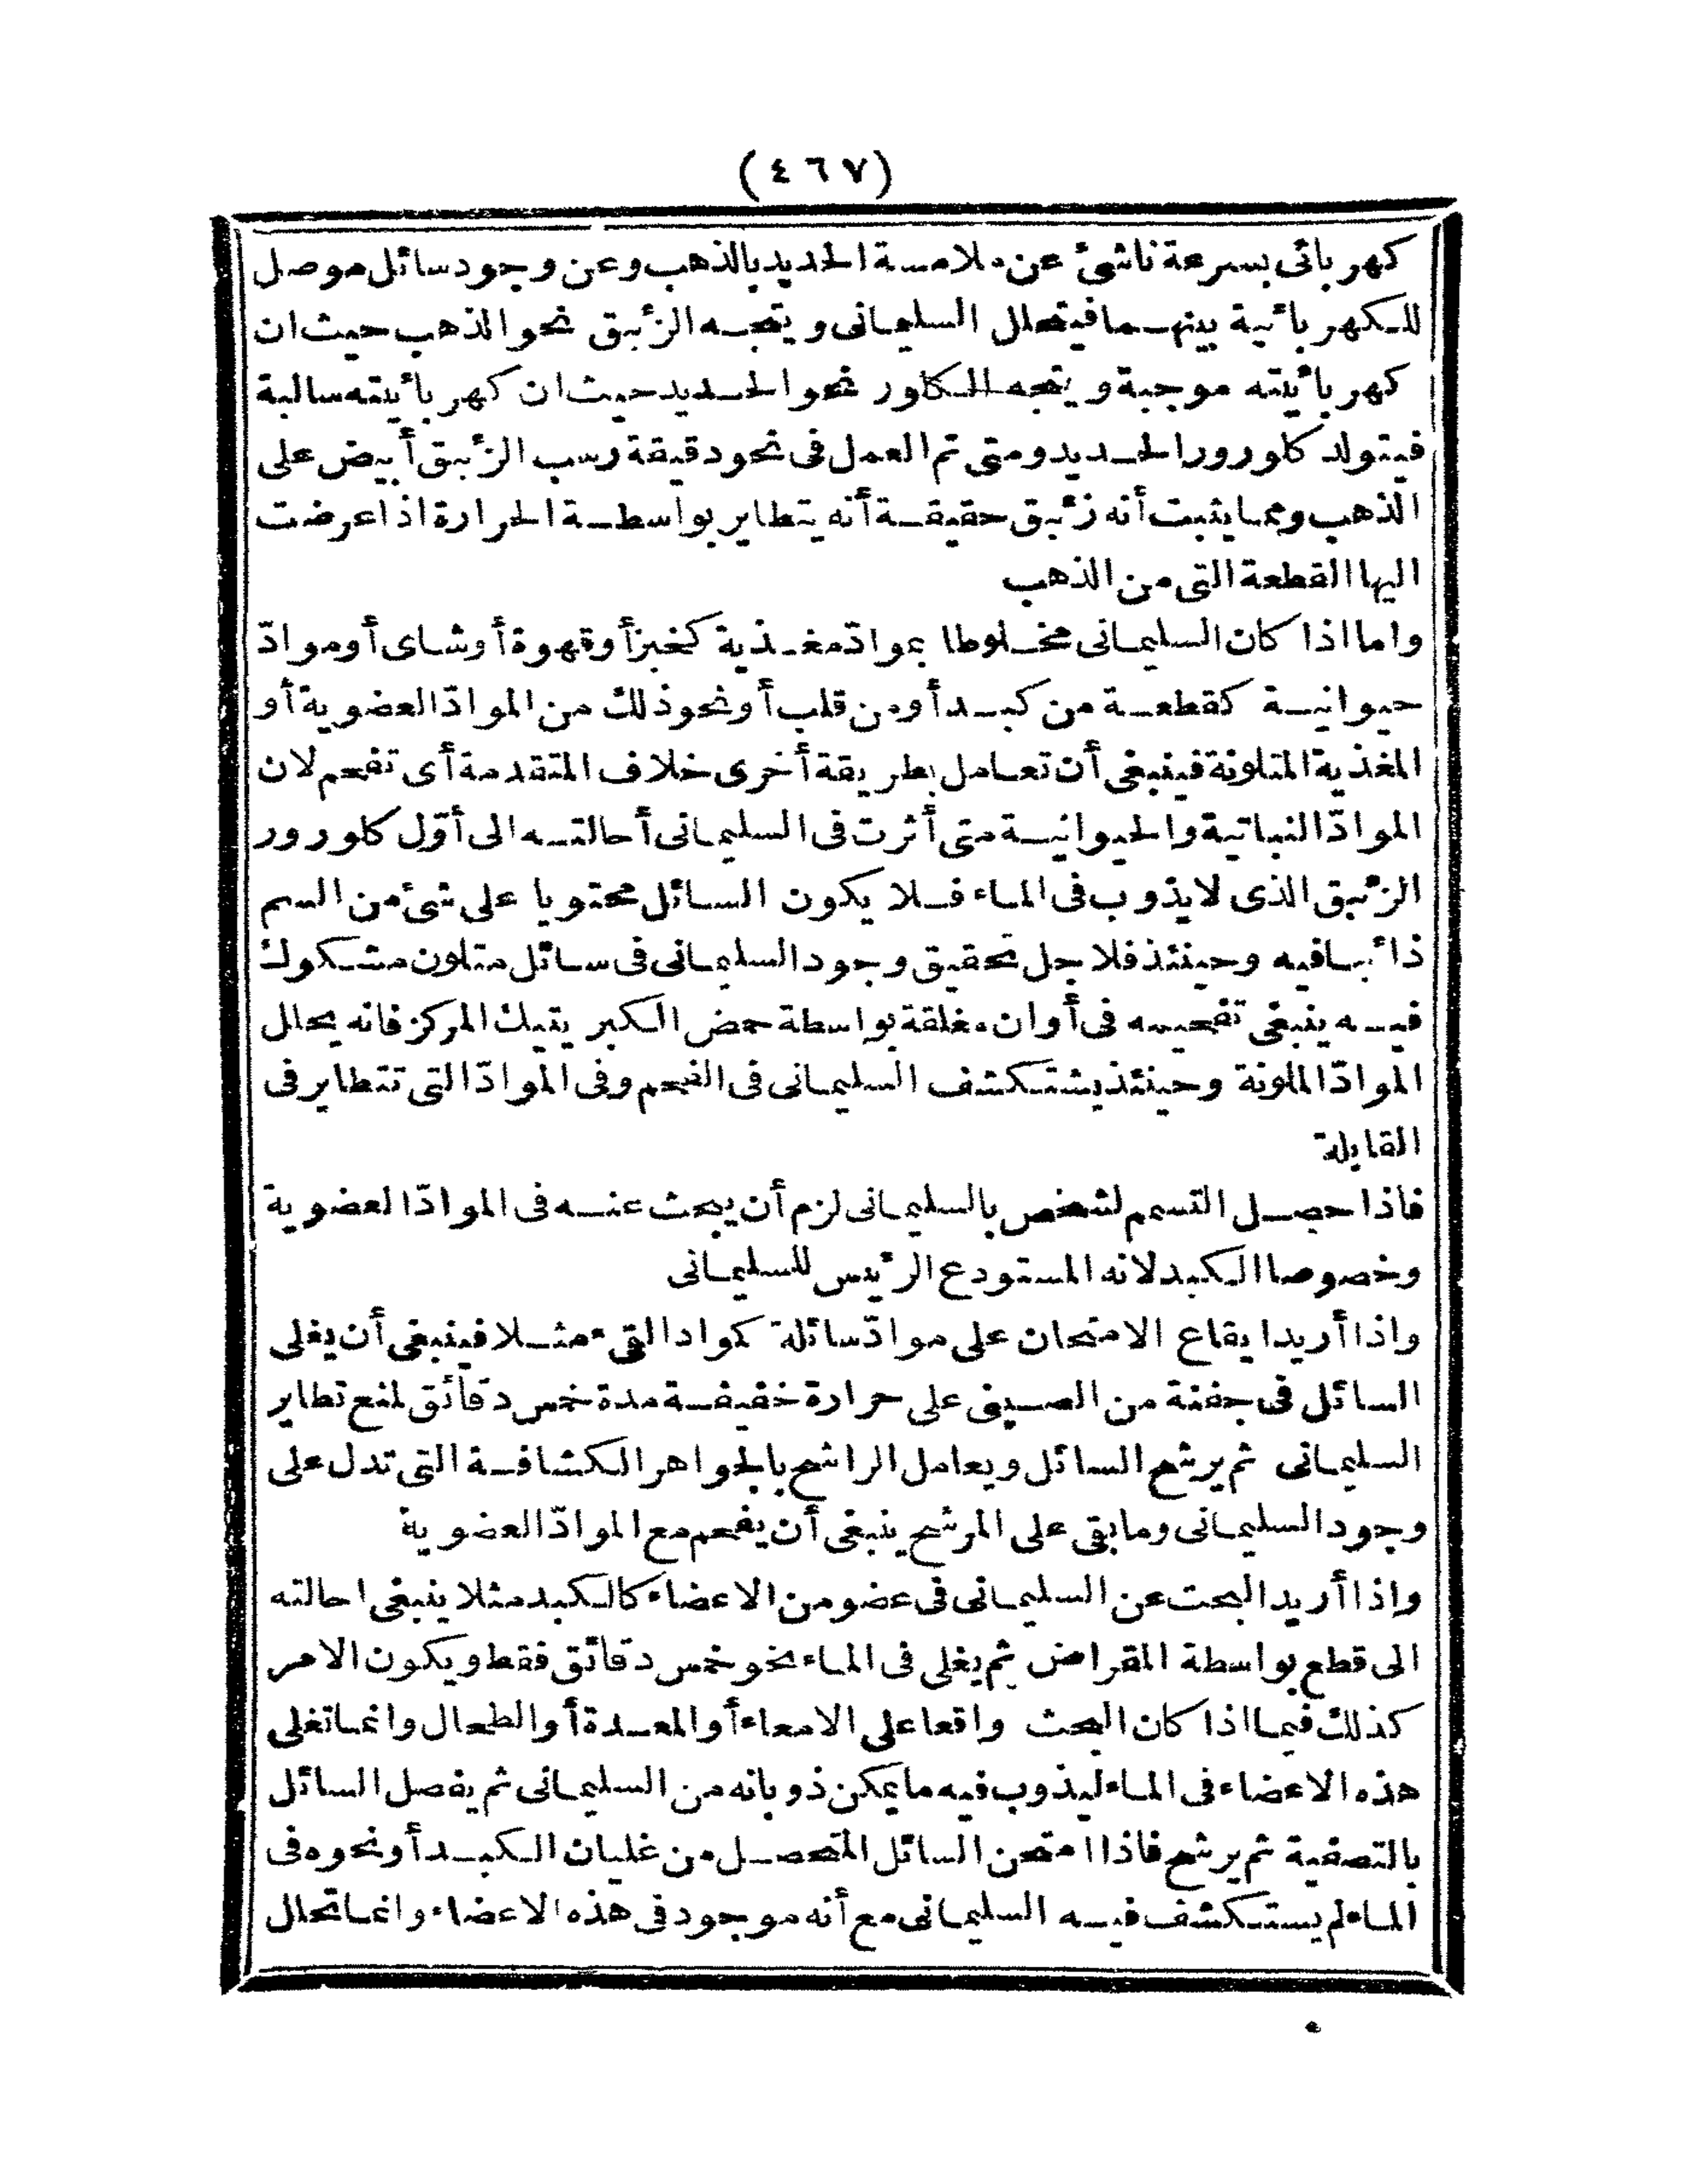 (٤٦٧)
كهربائى بسرعة ناشئ عن ملامسة الحديد بالذهب وعن وجود سائل موصل
للكهربائية بينهما فيتحلل السليمانى ويتجه الزئبق نحو الذهب حيث ان
كهربائيته موجبة ويتجه الكلور نحو الحديد حيث ان كهربائيته سالبة
فيتولد كلورور الحديد ومتى تم العمل فى نحو دقيقة رسب الزئبق أبيض على
الذهب ومما يثبت أنه زئبق حقيقة أنه يتطاير بواسطة الحرارة اذا عرضت
اليها القطعة التى من الذهب
واما اذا كان السليمانى مخلوطا بموادّ مغذية كخبز أو قهوة أو شاى أو موادّ
حيوانية كقطعة من كبد أو من قلب أو نحو ذلك من الموادّ العضوية أو
المغذية المتلونة فينبغى أن تعامل بطريقة أخرى خلاف المتقدمة أى تفحم لان
الموادّ النباتية والحيوانية متى أثرت فى السليمانى أحالته الى أوّل كلورور
الزئبق الذى لا يذوب فى الماء فلا يكون السائل محتويا على شئ من السم
ذائبا فيه وحينئذ فلاجل تحقيق وجود السليمانى فى سائل متلون مشكوك
فيه ينبغى تفحيمه فى أوان مغلقة بواسطة حمض الكبريتيك المركز فانه يحلل
الموادّ الملونة وحينئذ يستكشف السليمانى فى الفحم وفى الموادّ التى تتطاير فى
القابلة
فاذا حصل التسمم لشخص بالسليمانى لزم أن يبحث عنه فى الموادّ العضوية
وخصوصا الكبد لانه المستودع الرئيس للسليمانى
واذا أريد ايقاع الامتحان على موادّ سائلة كمواد القىء مثلا فينبغى أن يغلى
السائل فى جفنة من الصينى على حرارة خفيفة مدة خمس دقائق لمنع تطاير
السليمانى ثم يرشح السائل ويعامل الراشح بالجواهر الكشافة التى تدل على
وجود السليمانى وما بقى على المرشح ينبغى أن يفحم مع الموادّ العضوية
واذا أريد البحث عن السليمانى فى عضو من الاعضاء كالكبد مثلا ينبغى احالته
الى قطع بواسطة المقراض ثم يغلى فى الماء نحو خمس دقائق فقط ويكون الامر
كذلك فيما اذا كان البحث واقعا على الامعاء أو المعدة أو الطحال وانما تغلى
هذه الاعضاء فى الماء ليذوب فيه ما يمكن ذوبانه من السليمانى ثم يفصل السائل
بالتصفية ثم يرشح فاذا امتحن السائل المتحصل من غليان الكبد أو نحوه فى
الماء لم يستكشف فيه السليمانى مع أنه موجود فى هذه الاعضاء وانما تحلل